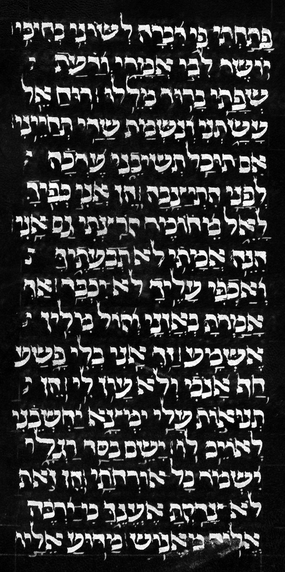 פָּתַחְתִּי פִי דִּבְּרָה לְשׁוֹנִי בְחִכִּי׃
יֹשֶׁר לִבִּי אֲמָרָי וְדַעַת
שְׂפָתַי בָּרוּר מִלֵּלוּ׃ רוּחַ אֵל
עָשָׂתְנִי וְנִשְׁמַת שַׁדַּי תְּחַיֵּנִי׃
אִם תּוּכַל הֲשִׁיבֵנִי עֶרְכָה
לְפָנַי הִתְיַצָּבָה׃ הֵן אֲנִי כְפִיךָ
לָאֵל מֵחֹמֶר קֹרַצְתִּי גַם אָנִי׃
הִנֵּה אֵמָתִי לֹא תְבַעֲתֶךָּ
וְאַכְפִּי עָלֶיךָ לֹא יִכְבָּד׃ אַךְ
אָמַרְתָּ בְאָזְנָי וְקוֹל מִלִּין
אֶשְׁמָע׃ זַךְ אֲנִי בְּלִי פָשַׁע
חַף אָנֹכִי וְלֹא עָוֹן לִי׃ הֵן
תְּנוּאוֹת עָלַי יִמְצָא יַחְשְׁבֵנִי
לְאוֹיֵב לוֹ׃ יָשֵׂם בַּסַּד רַגְלָי
יִשְׁמֹר כָּל אָרְחֹתָי׃ הֶן זֹאת
לֹא צָדַקְתָּ אֶעֱנֶךָּ כִּי יִרְבֶּה
אֱלוֹהַּ מֵאֱנוֹשׁ׃ מַדּוּעַ אֵלָיו